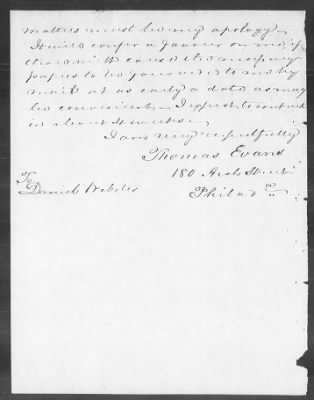 matters must be my apology.
It will confer a favour on me if
thou wilt cause the necessary
papers to be forwarded to me by
mail at as early a date as may
be convenient. I expect to embark
in about 4 weeks.
I am very respectfully
Thomas Evans
180 Arch Street
To
Daniel Webster
Philada